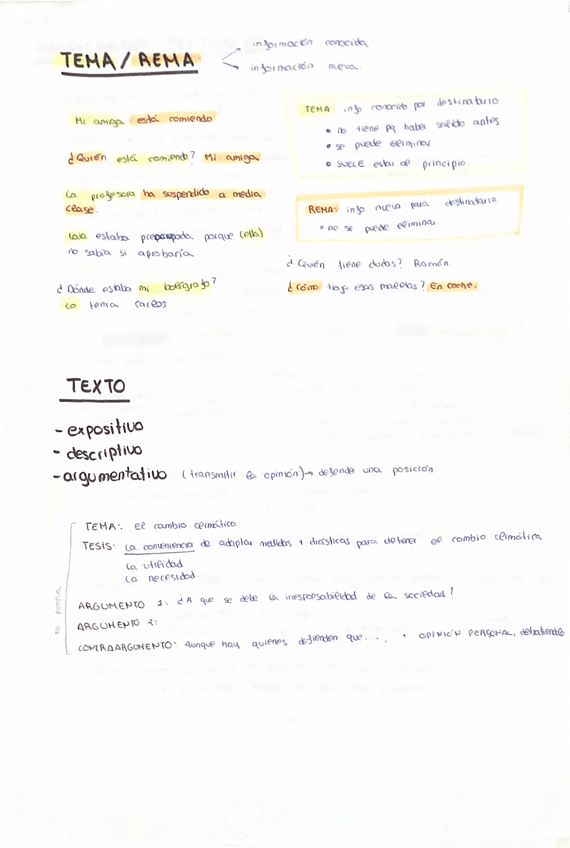 TEMA / REMA
información conocida
información nueva.
Mi amiga está comiendo
¿Quién está comiendo? Mi amiga
La profesora ha suspendido a media
clase.
Laia estaba preocupada porque (ella)
no sabía si aprobaría
¿Dónde estaba mi bolígrafo?
Lo tenía Carlos
TEMA info conocida por destinatario
• no tiene pq haber salido antes
• se puede eliminar
• SUELE estar al principio.
REMA: info nueva para destinatario
• no se puede eliminar.
¿Quién tiene dudas? Ramón
¿Cómo trajo esas maletas? En coche.
TEXTO
- expositivo
- descriptivo
- argumentativo (transmitir la opinión) → defender una posición
no poner
TEMA: el cambio climático
TESIS: La conveniencia de adoptar medidas + drásticas para detener el cambio climático
La utilidad
La necesidad
ARGUMENTO 1: ¿A que se debe la irresponsabilidad de la sociedad?
ARGUMENTO 2:
CONTRAARGUMENTO: Aunque hay quienes defienden que.... + OPINIÓN PERSONAL,